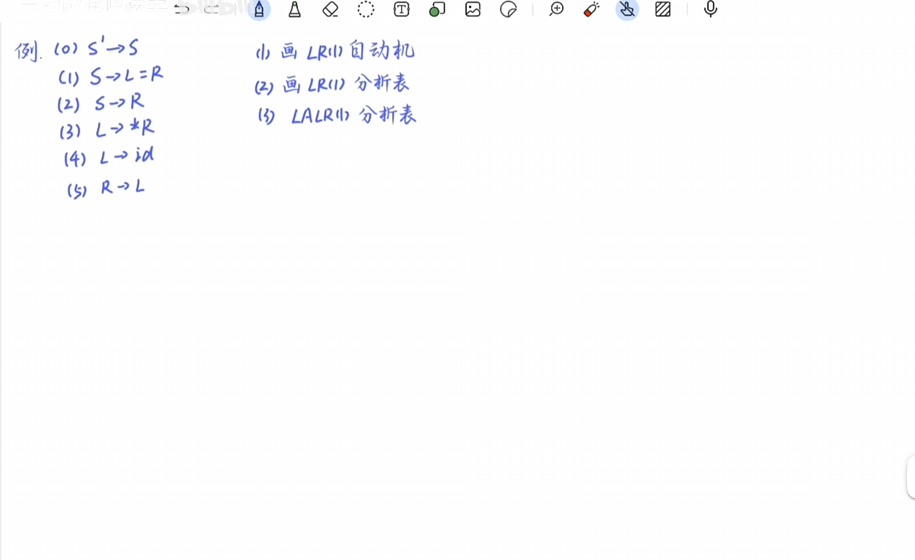 例. (0) S'→S
(1) S→L=R
(2) S→R
(3) L→*R
(4) L→id
(5) R→L
(1) 画 LR(1) 自动机
(2) 画 LR(1) 分析表
(3) LALR(1) 分析表